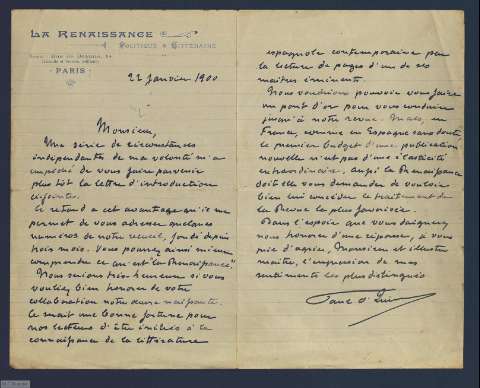 LA RENAISSANCE
POLITIQUE & LITTÉRAIRE
PARIS
22 janvier 1900
Monsieur,
Une série de circonstances
indépendantes de ma volonté m'a
empêché de vous faire parvenir
plus tôt la lettre d'introduction
ci jointe.
Ce retard a cet avantage qu'il me
permet de vous adresser quelques
numéros de notre recueil, fondé depuis
trois mois. Vous pourrez ainsi mieux
comprendre ce qu'est "la Renaissance".
Nous serions très heureux si vous
vouliez bien honorer de votre
collaboration notre œuvre naissante.
Ce serait une bonne fortune pour
nos lecteurs d'être initiés à la
connaissance de la littérature
espagnole contemporaine par
la lecture de pages d'un de ses
maîtres éminents.
Nous voudrions pouvoir vous faire
un pont d'or pour vous conduire
jusqu'à notre revue. Mais, en
France, comme en Espagne sans doute,
le premier budget d'une publication
nouvelle n'est pas d'une élasticité
extraordinaire. Aussi la Renaissance
doit-elle vous demander de vouloir
bien lui concéder le traitement de
la Revue la plus favorisée.
Dans l'espoir que vous daignerez
nous honorer d'une réponse, je vous
prie d'agréer, Monsieur et illustre
maître, l'expression de mes
sentiments les plus distingués